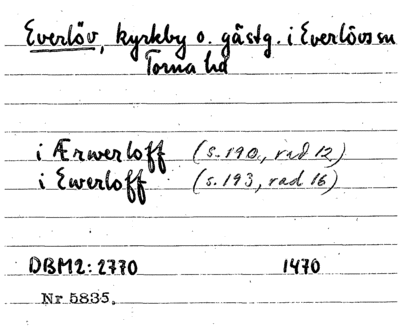 Everlöv, kyrkby o. gästg. i Everlövs sn
Torna hd
i Ærwerloff (s. 190, rad 12)
i Ewerloff (s. 193, rad 16)
DBM2: 2770 1470
Nr 5835.